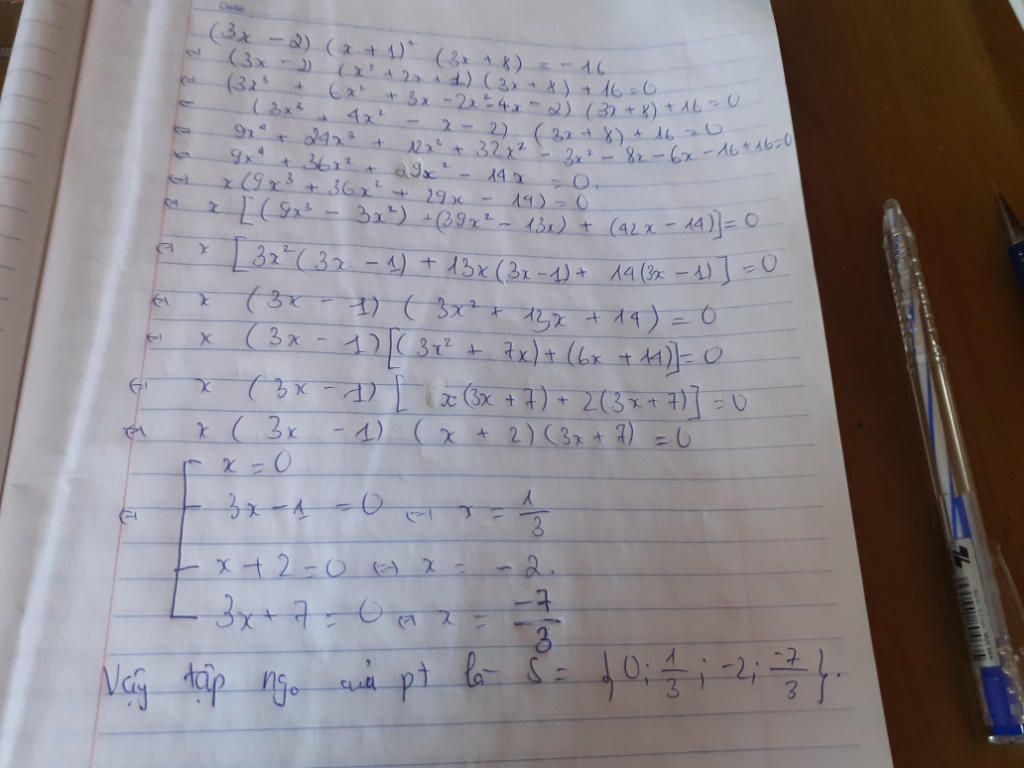 Date
(3x - 2) (x + 1)² (3x + 8) = -16
⇔ (3x - 2) (x² + 2x + 1) (3x + 8) + 16 = 0
⇔ (3x³ + 6x² + 3x - 2x² - 4x - 2) (3x + 8) + 16 = 0
⇔ (3x³ + 4x² - x - 2) (3x + 8) + 16 = 0
⇔ 9x⁴ + 24x³ + 12x³ + 32x² - 3x² - 8x - 6x - 16 + 16 = 0
⇔ 9x⁴ + 36x³ + 29x² - 14x = 0.
⇔ x(9x³ + 36x² + 29x - 14) = 0
⇔ x [(9x³ - 3x²) + (39x² - 13x) + (42x - 14)] = 0
⇔ x [3x²(3x - 1) + 13x(3x - 1) + 14(3x - 1)] = 0
⇔ x (3x - 1) (3x² + 13x + 14) = 0
⇔ x (3x - 1) [(3x² + 7x) + (6x + 14)] = 0
⇔ x (3x - 1) [x(3x + 7) + 2(3x + 7)] = 0
⇔ x (3x - 1) (x + 2) (3x + 7) = 0
x = 0
⇔ 3x - 1 = 0 ⇔ x = 1/3
x + 2 = 0 ⇔ x = -2.
3x + 7 = 0 ⇔ x = -7/3
Vậy tập ngo của pt là S = {0; 1/3; -2; -7/3}.